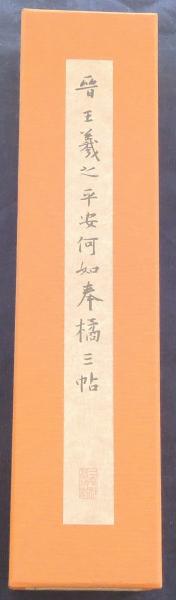 晉王羲之平安何如奉橘三帖